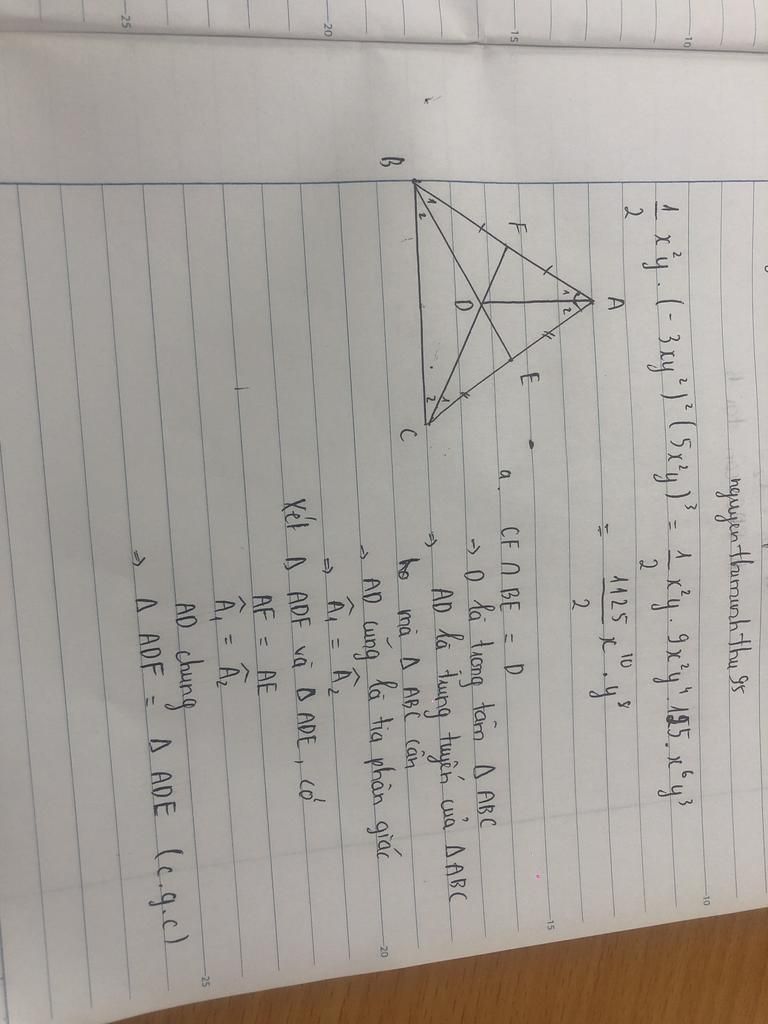 nguyenthaminhthu95
1/2 x²y . (-3xy²)² (5x²y)³ = 1/2 x²y . 9x²y⁴ . 125 . x⁶y³
= 1125/2 x¹⁰ . y⁸
A
F
E
D
B
C
1 2
1 2
1 2
a. CF ∩ BE = D
→ D là trọng tâm Δ ABC
⇒ AD là trung tuyến của Δ ABC
mà Δ ABC cân
→ AD cũng là tia phân giác
⇒ Â₁ = Â₂
Xét Δ ADF và Δ ADE, có
AF = AE
Â₁ = Â₂
AD chung
⇒ Δ ADF = Δ ADE (c.g.c)
10
15
20
25
10
15
20
25